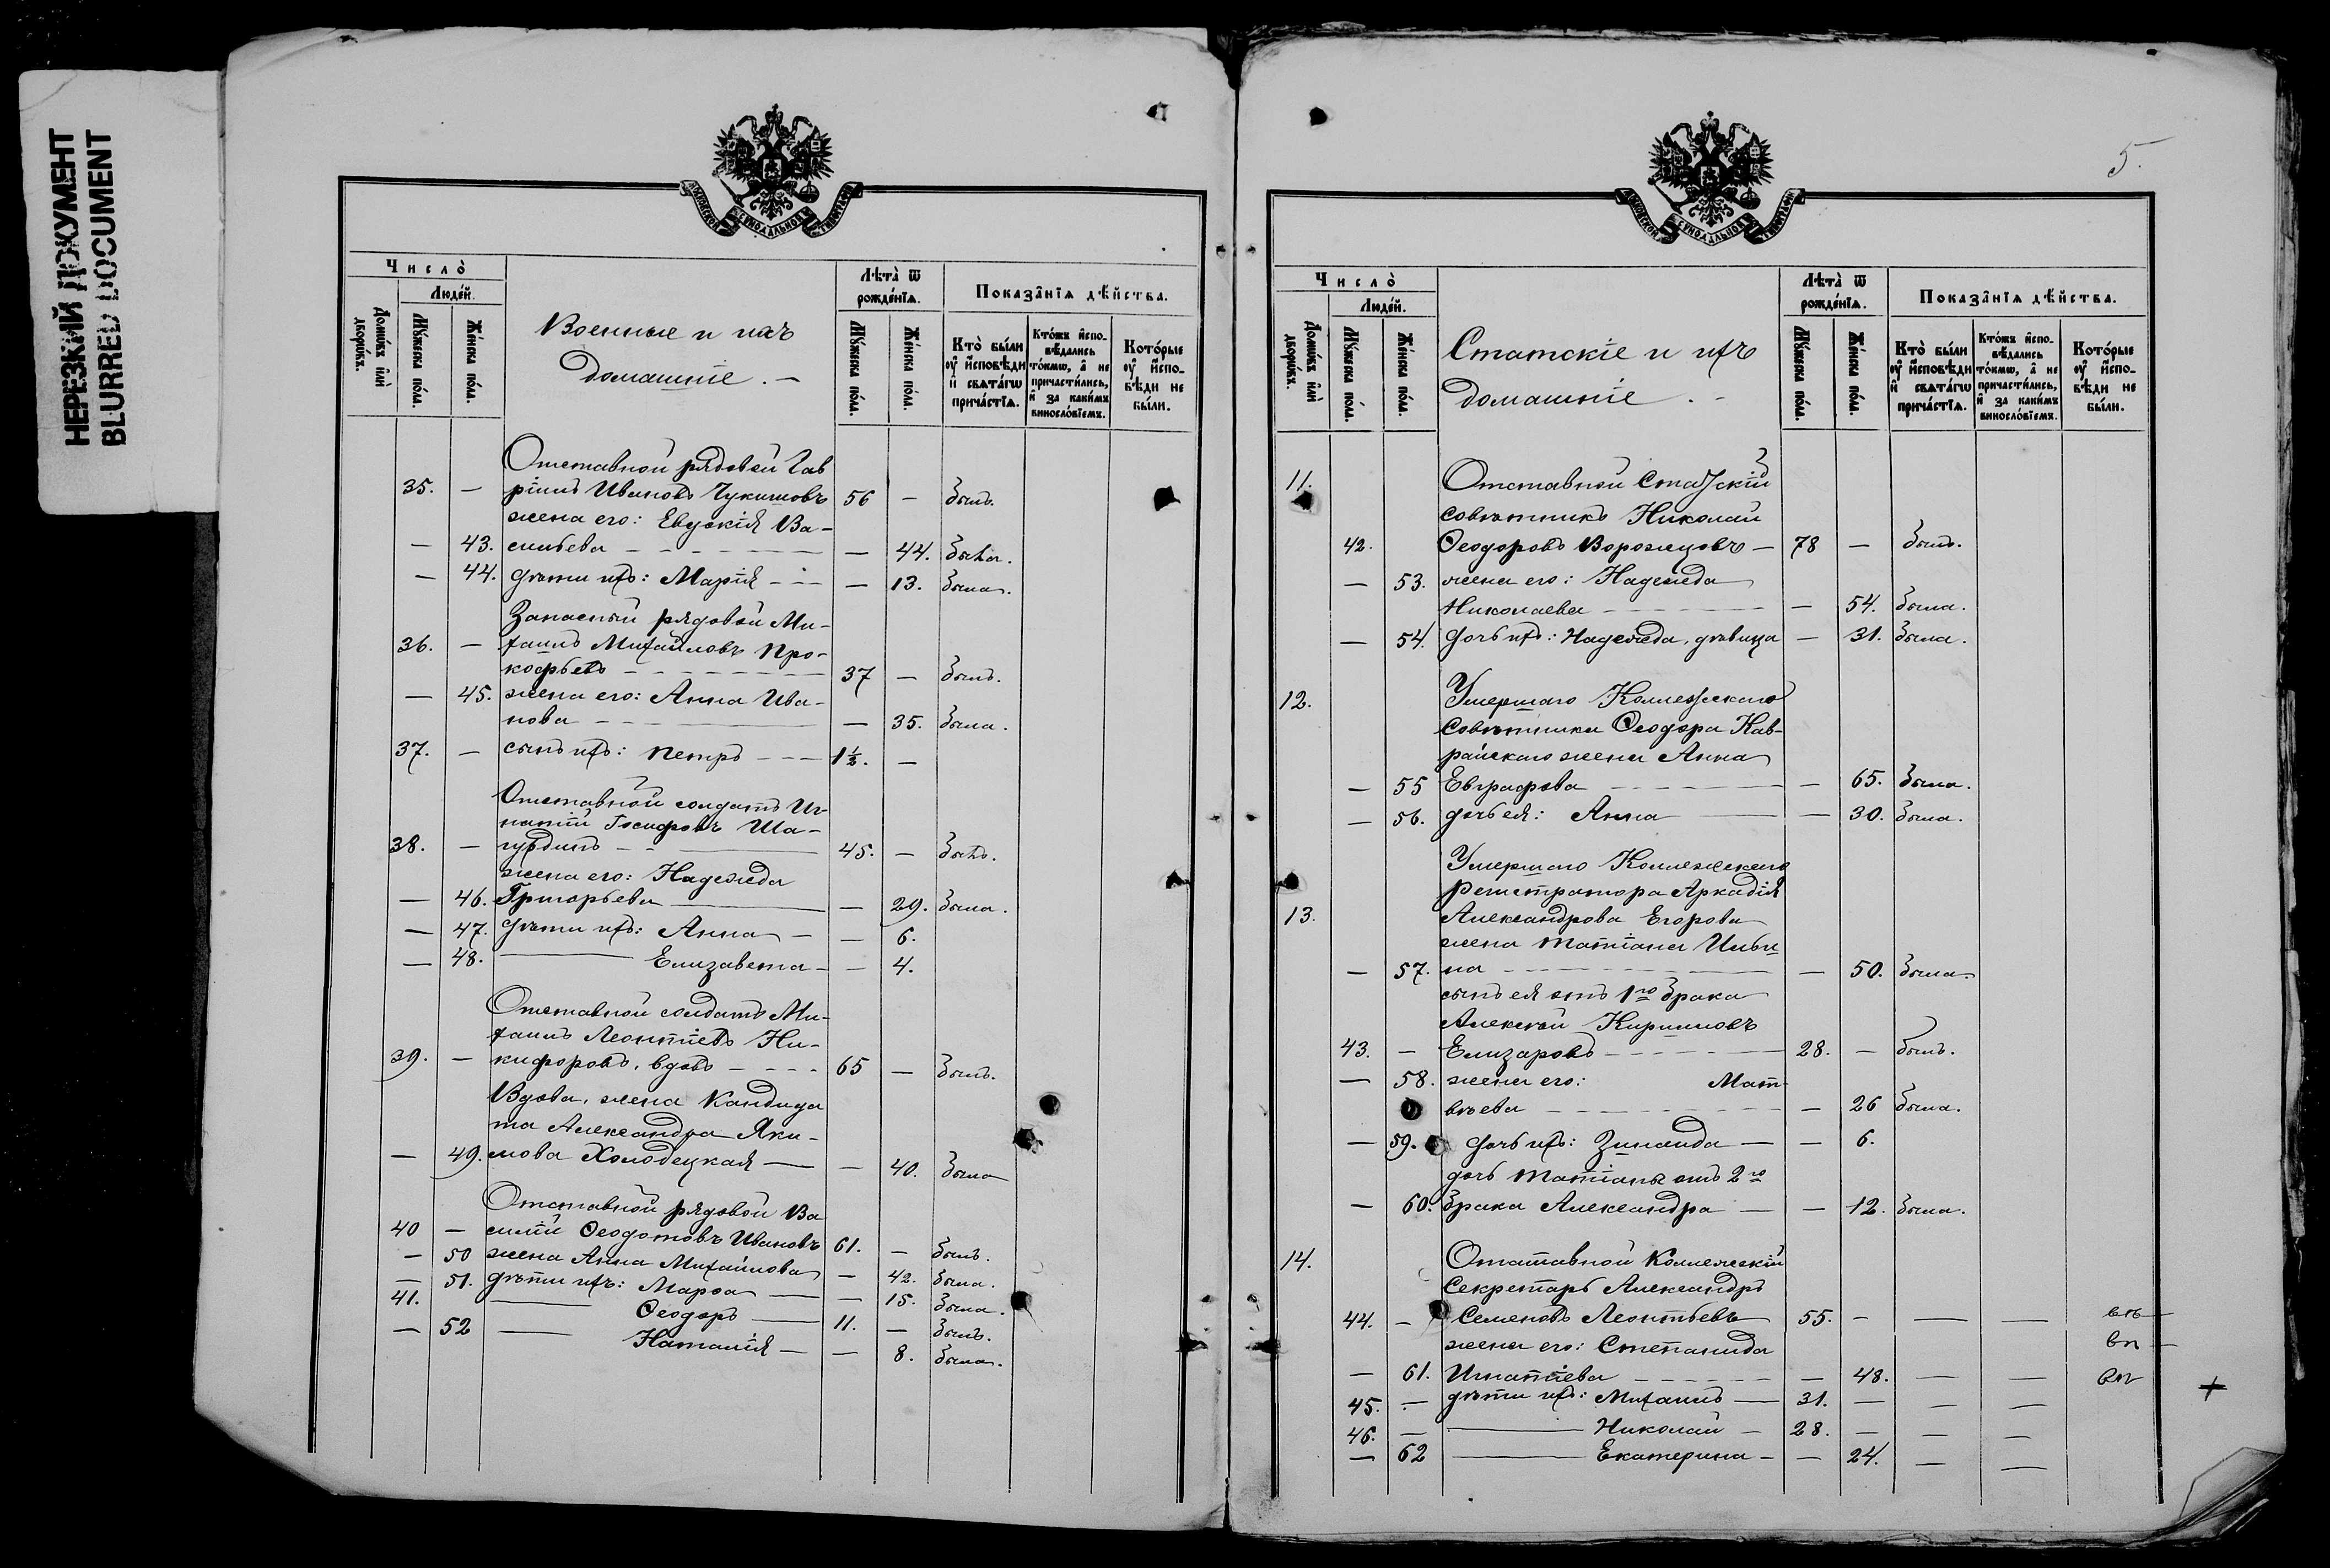 НЕРЕЗКИЙ ДОКУМЕНТ
BLURRED DOCUMENT
Число̀
Людéй.
Домѡ́въ и҆лѝ дворѡ́въ.
Мꙋ́жеска по́ла.
Же́нска по́ла.
Военные и ихъ
домашніе. —
Лѣта̀ ѿ
рожде́нїѧ.
Мꙋ́жеска по́ла.
Же́нска по́ла.
Показа̂нїѧ дѣ́йства.
Кто̀ бы́ли
ᲂу҆ и҆сповѣ́ди
и҆ свѧта́гѡ
прича́стїѧ.
Кто́жъ и҆спо-
вѣ́дались
то́кмѡ, а҆ не
причасти́лись,
и҆ за каки́мъ
виносло́вїемъ.
Кото́рые
ᲂу҆ и҆спо-
вѣ́ди не
бы́ли.
Отставной рядовой Гав
35. — ріилъ Ивановъ Чукишовъ 56 — былъ.
жена его: Евдокія Ва-
— 43. сильева — 44. была.
— 44. дѣти ихъ: Марія — 13. была.
Запасный рядовой Ми-
36. — хаилъ Михайловъ Про-
кофьевъ 37 — былъ.
— 45. жена его: Анна Ива-
нова — 35. была.
37. — сынъ ихъ: Петръ 1½. —
Отставной солдатъ Иг-
натій Іосифовъ Ша-
38. — гурдинъ 45. — былъ.
жена его: Надежда
— 46. Григорьева — 29. была.
— 47. дѣти ихъ: Анна — 6.
— 48. — Елизавета — 4.
Отставной солдатъ Ми-
хаилъ Леонтіевъ Ни-
39. — кифоровъ, вдовъ 65 — былъ.
Вдова, жена Кандида
та Александра Яки-
— 49. мова Холодецкая — 40. была
Отставной рядовой Ва
40 — силій Ѳеодотовъ Ивановъ 61. — былъ.
— 50 жена Анна Михайлова — 42. была.
— 51. дѣти ихъ: Марѳа — 15. была.
41. — Ѳеодоръ 11. — былъ.
— 52 — Наталія — 8. была.
5.
Число̀
Людéй.
Домѡ́въ и҆лѝ дворѡ́въ.
Мꙋ́жеска по́ла.
Же́нска по́ла.
Статскіе и ихъ
домашніе. —
Лѣта̀ ѿ
рожде́нїѧ.
Мꙋ́жеска по́ла.
Же́нска по́ла.
Показа̂нїѧ дѣ́йства.
Кто̀ бы́ли
ᲂу҆ и҆сповѣ́ди
и҆ свѧта́гѡ
прича́стїѧ.
Кто́жъ и҆спо-
вѣ́дались
то́кмѡ, а҆ не
причасти́лись,
и҆ за каки́мъ
виносло́вїемъ.
Кото́рые
ᲂу҆ и҆спо-
вѣ́ди не
бы́ли.
11. Отставной Статскій
совѣтникъ Николай
42. Ѳеодоровъ Ворожцовъ — 78 — былъ.
— 53. жена его: Надежда
Николаева — 54. была.
— 54. дочь ихъ: Надежда, дѣвица — 31. была.
12. Умершаго Коллежскаго
Совѣтника Ѳеодора Нав-
райскаго жена Анна
— 55 Евграфова — 65. была.
— 56. дочь ея: Анна — 30. была.
Умершаго Коллежскаго
Регистратора Аркадія
13. Александрова Егорова
жена Татіана Ильи
— 57. на — 50. была.
сынъ ея отъ 1го брака
Алексѣй Кирилловъ
43. — Елизаровъ 28. — былъ.
— 58. жена его: Мат-
вѣева — 26 была.
— 59. дочь ихъ: Зинаида — 6.
дочь Татіаны отъ 2го
— 60. брака Александра — 12. была.
14. Отставной Коллежскій
Секретарь Александръ
44. — Семеновъ Леонтьевъ 55. — — —
жена его: Степанида
— 61. Игнатіева — 48. — —
45. — дѣти ихъ: Михаилъ 31. — — —
46. — Николай 28. — — —
— 62 — Екатерина — 24. — —